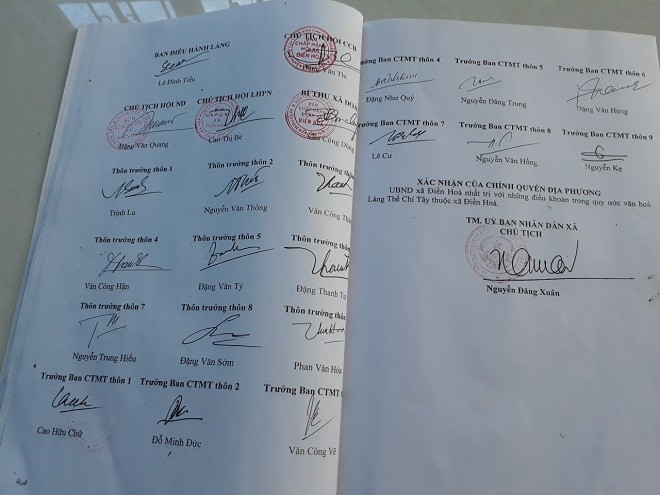 BAN ĐIỀU HÀNH LÀNG
CHỦ TỊCH HỘI CCB
Lê Đình Tiếu
Văn Thi
CHỦ TỊCH HỘI ND
CHỦ TỊCH HỘI LHPN
BÍ THƯ XÃ ĐOÀN
Đặng Văn Quang
Cao Thị Bé
Công Dũng
Thôn trưởng thôn 1
Thôn trưởng thôn 2
Thôn trưởng
Trịnh Lu
Nguyễn Văn Thông
Văn Công
Thôn trưởng thôn 4
Thôn trưởng thôn 5
Thôn trưởng
Văn Công Hận
Đặng Văn Tý
Đặng Thanh Từ
Thôn trưởng thôn 7
Thôn trưởng thôn 8
Thôn trưởng
Nguyễn Trung Hiếu
Đặng Văn Sớm
Phan Văn Hóa
Trưởng Ban CTMT thôn 1
Trưởng Ban CTMT thôn 2
Trưởng Ban CTMT
Cao Hữu Chữ
Đỗ Minh Đức
Văn Công Vẽ
Trưởng Ban CTMT thôn 4
Trưởng Ban CTMT thôn 5
Trưởng Ban CTMT thôn 6
Đặng Như Quý
Nguyễn Đăng Trung
Đặng Văn Hùng
Trưởng Ban CTMT thôn 7
Trưởng Ban CTMT thôn 8
Trưởng Ban CTMT thôn 9
Lê Cư
Nguyễn Văn Hồng
Nguyễn Kẹ
XÁC NHẬN CỦA CHÍNH QUYỀN ĐỊA PHƯƠNG
UBND xã Điền Hoà nhất trí với những điều khoản trong quy ước văn hoá
Làng Thế Chí Tây thuộc xã Điền Hoà.
TM. UỶ BAN NHÂN DÂN XÃ
CHỦ TỊCH
Nguyễn Đăng Xuân